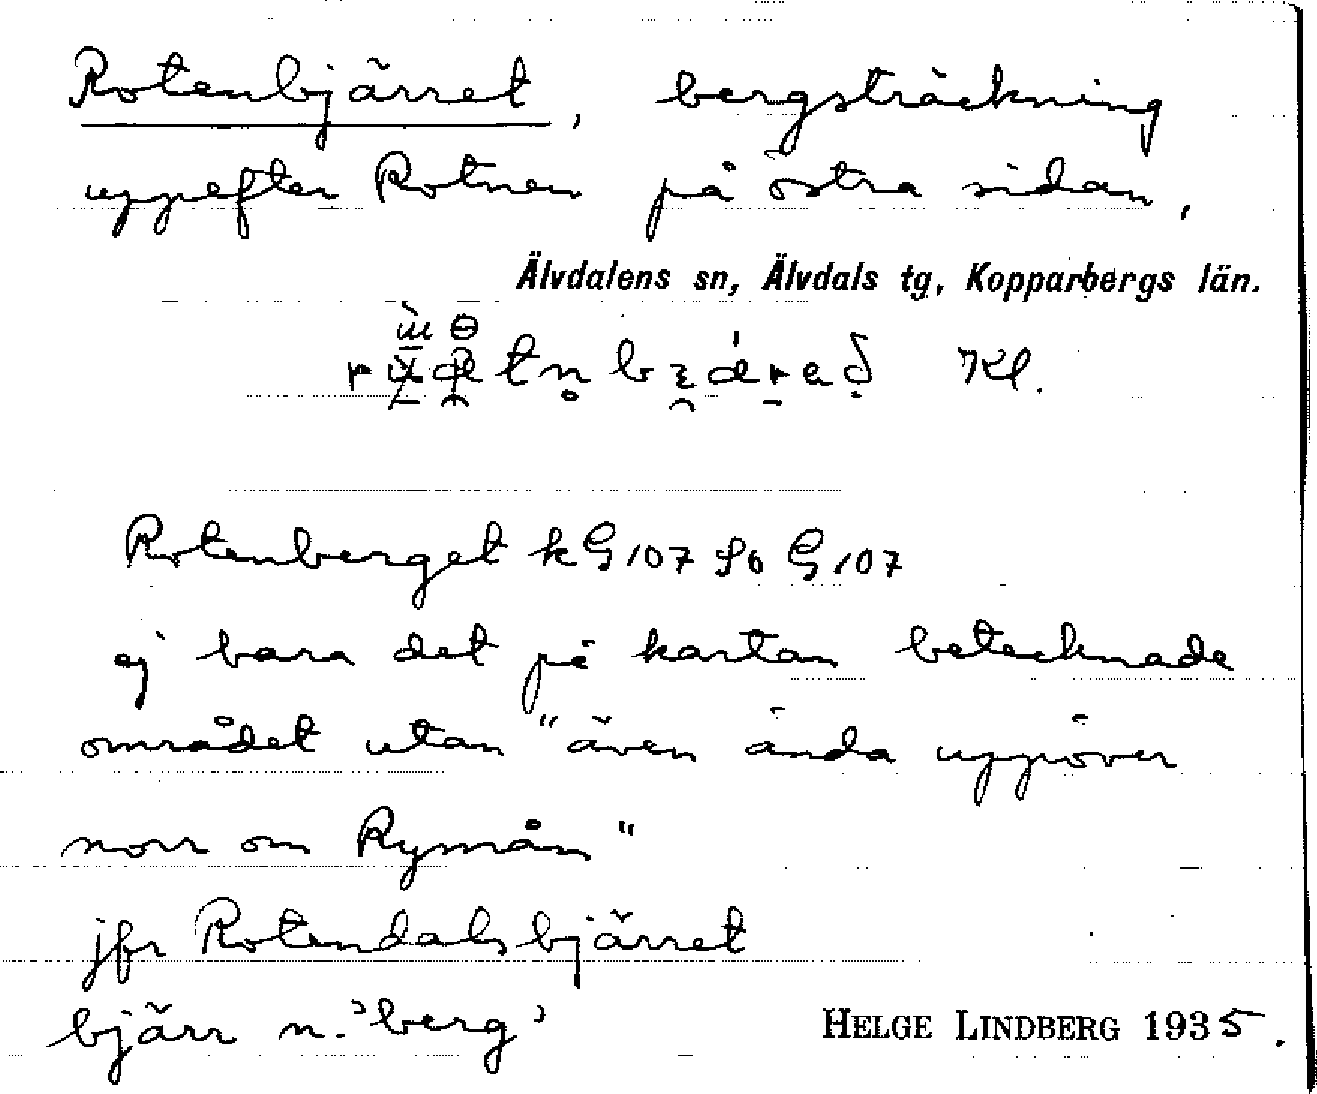 Rotenbjärret, bergsträckning
uppefter Rotnen på östra sidan,
Älvdalens sn, Älvdals tg, Kopparbergs län.
Kl.
Rotenberget kG 107 So G 107
ej bara det på kartan betecknade
området utan "även ända uppöver
norr om Rymån"
jfr Rotendalsbjärret
bjärr n. 'berg'
HELGE LINDBERG 1935.